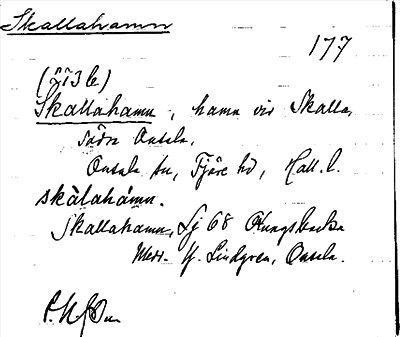 Skallahamn
177
(213 b)
Skallahamn, hamn vid Skalla,
södra Onsala.
Onsala sn, Fjäre hd, Hall. l.
skàlahámn.
Skallahamn, Lj 68 Kungsbacka
Medd. H. Lindgren, Onsala.